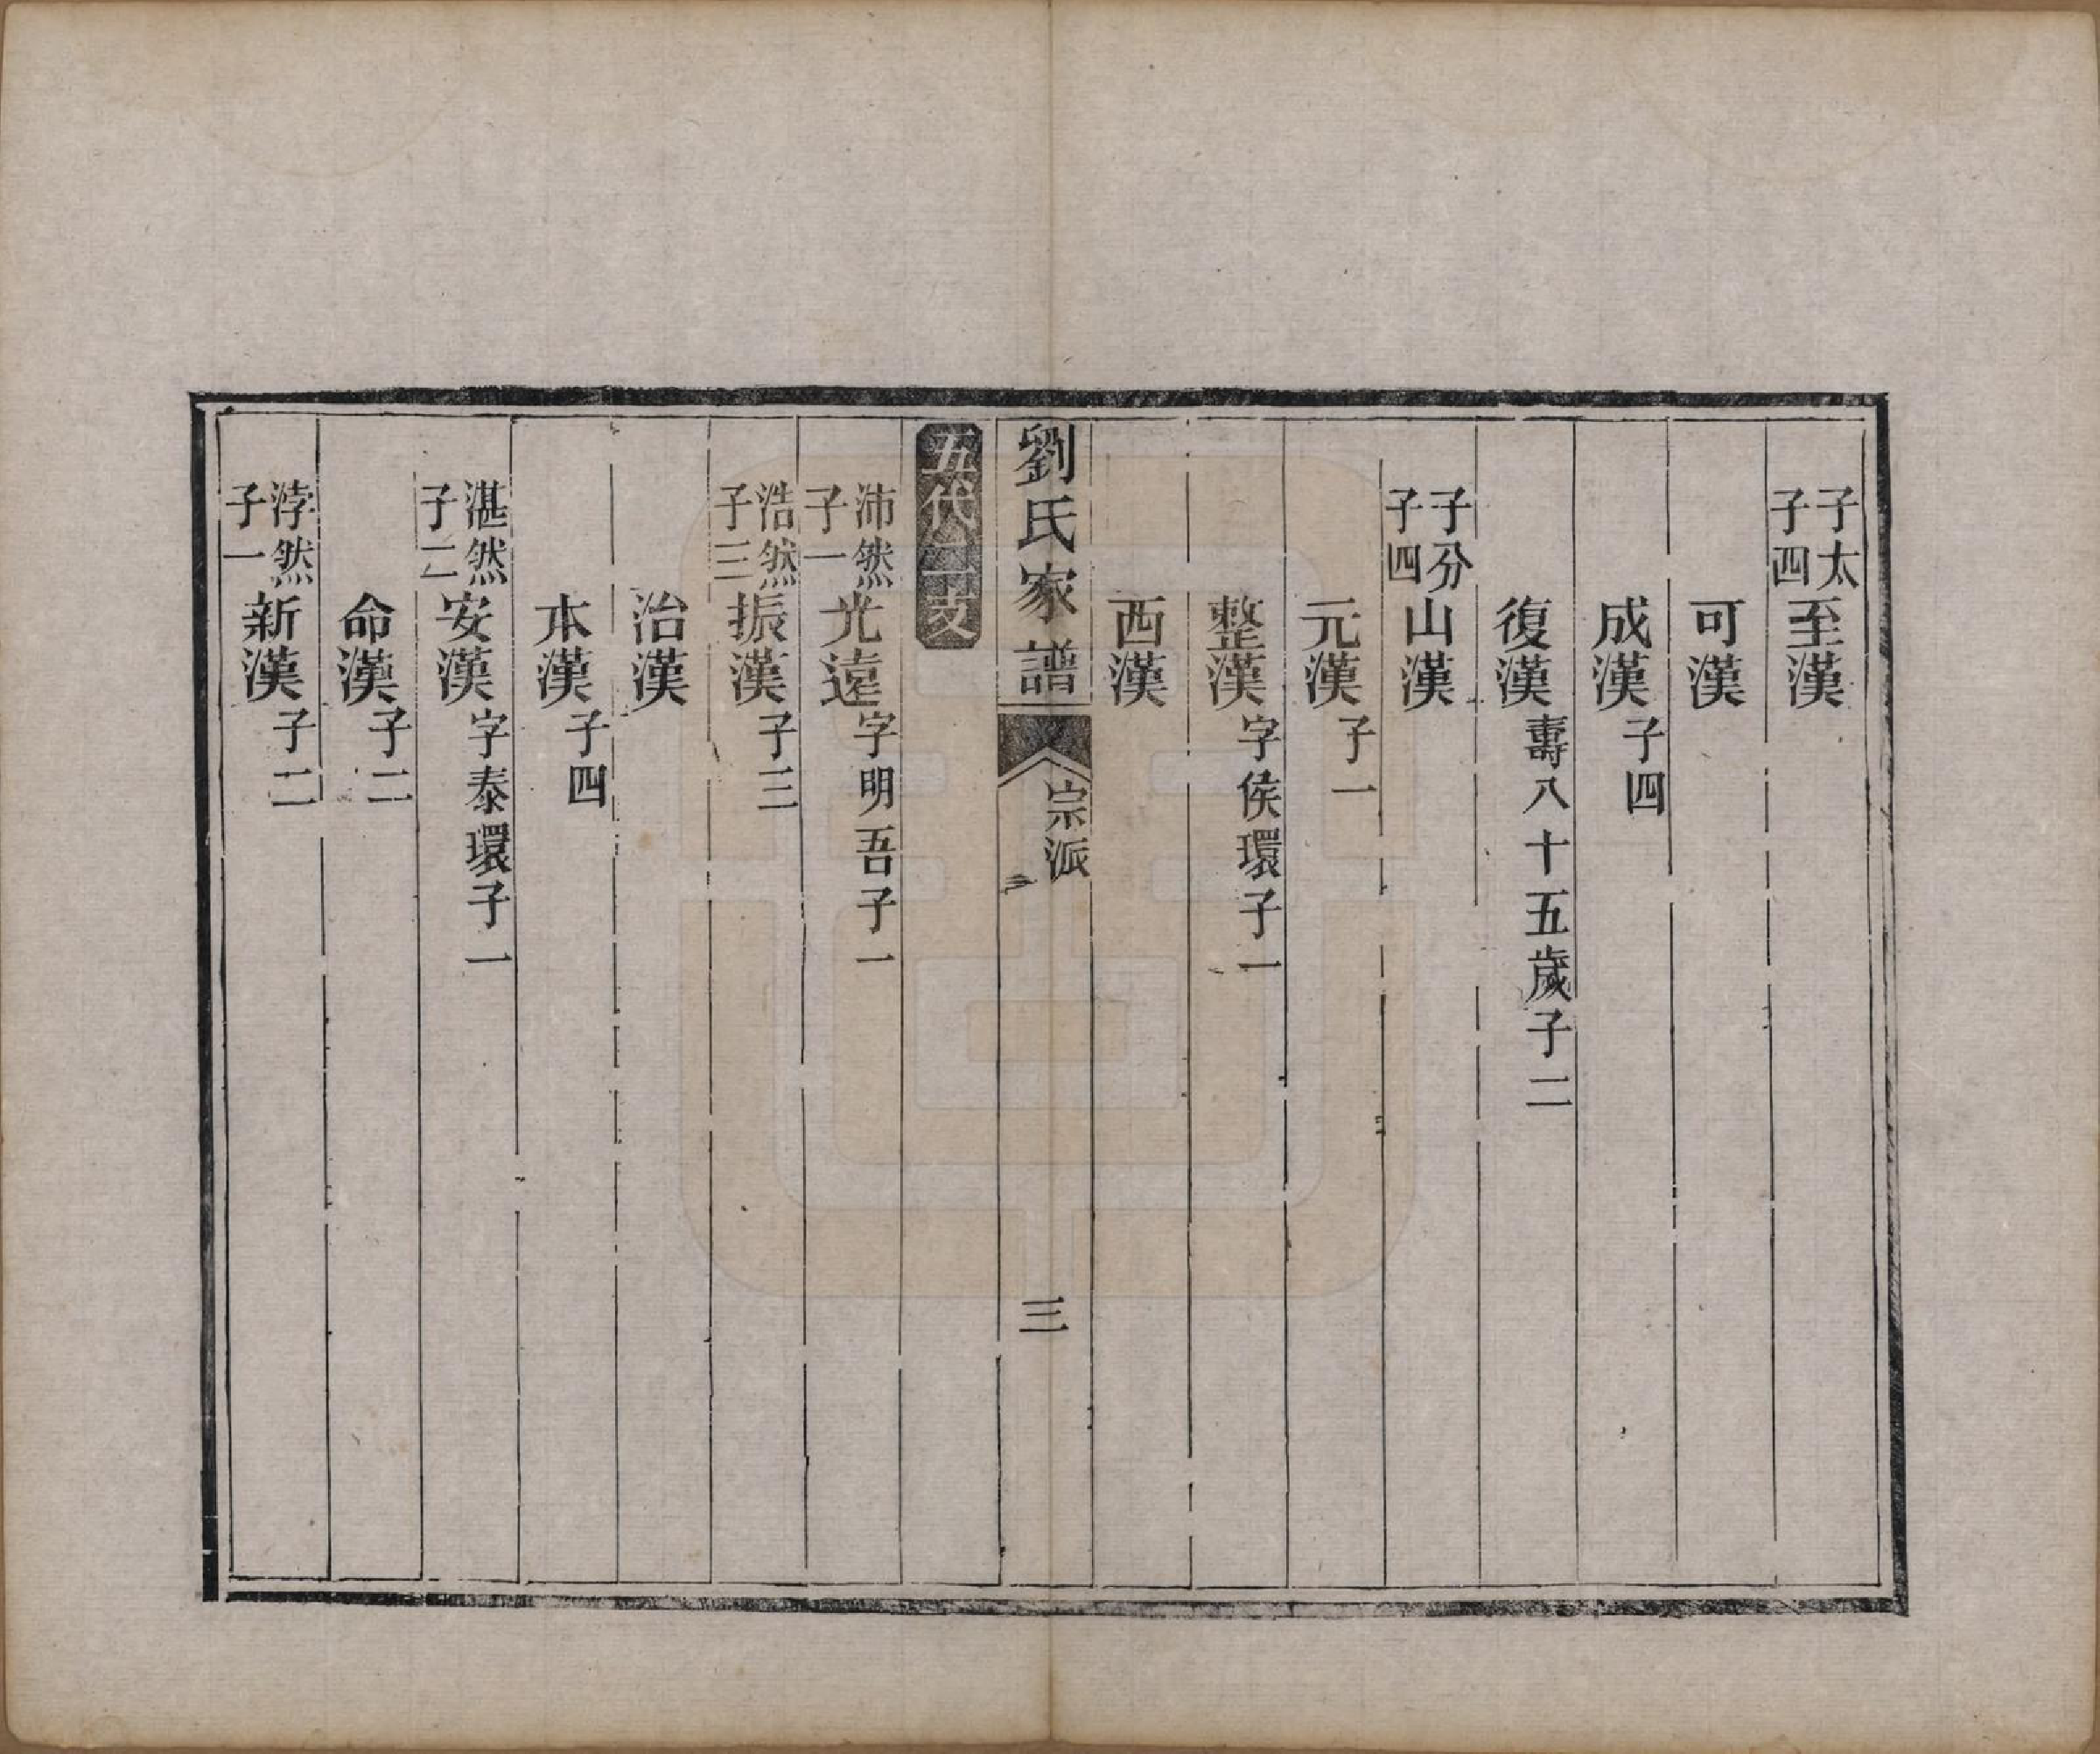 子太子四至漢
可漢
成漢子四
復漢壽八十五歲子二
子分子四山漢
元漢子一
整漢字侯環子一
西漢
劉氏家譜 宗派 三
五代二支
沛然子一光遠字明吾子一
浩然子三振漢子三
治漢
本漢子四
湛然子二安漢字泰環子一
命漢子二
浡然子一新漢子二